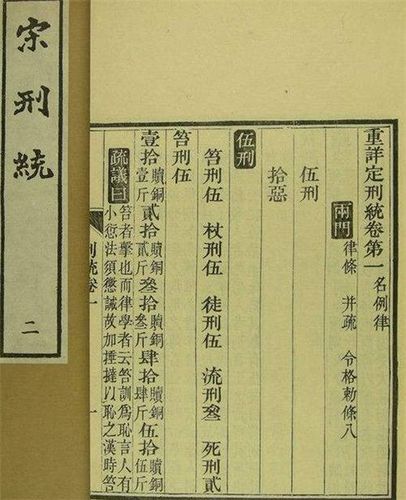 宋刑統
二
重詳定刑統卷第一 名例律
兩門 律條 并疏 令格勅條八
伍刑
拾惡
伍刑
笞刑伍 杖刑伍 徒刑伍 流刑叁 死刑貳
笞刑伍
壹拾贖銅壹斤 貳拾贖銅貳斤 叁拾贖銅叁斤 肆拾贖銅肆斤 伍拾贖銅伍斤
疏議曰 笞者擊也而律學者云笞訓爲恥言人有
小愆法須懲誡故加捶撻以恥之漢時笞
刑統卷一
一